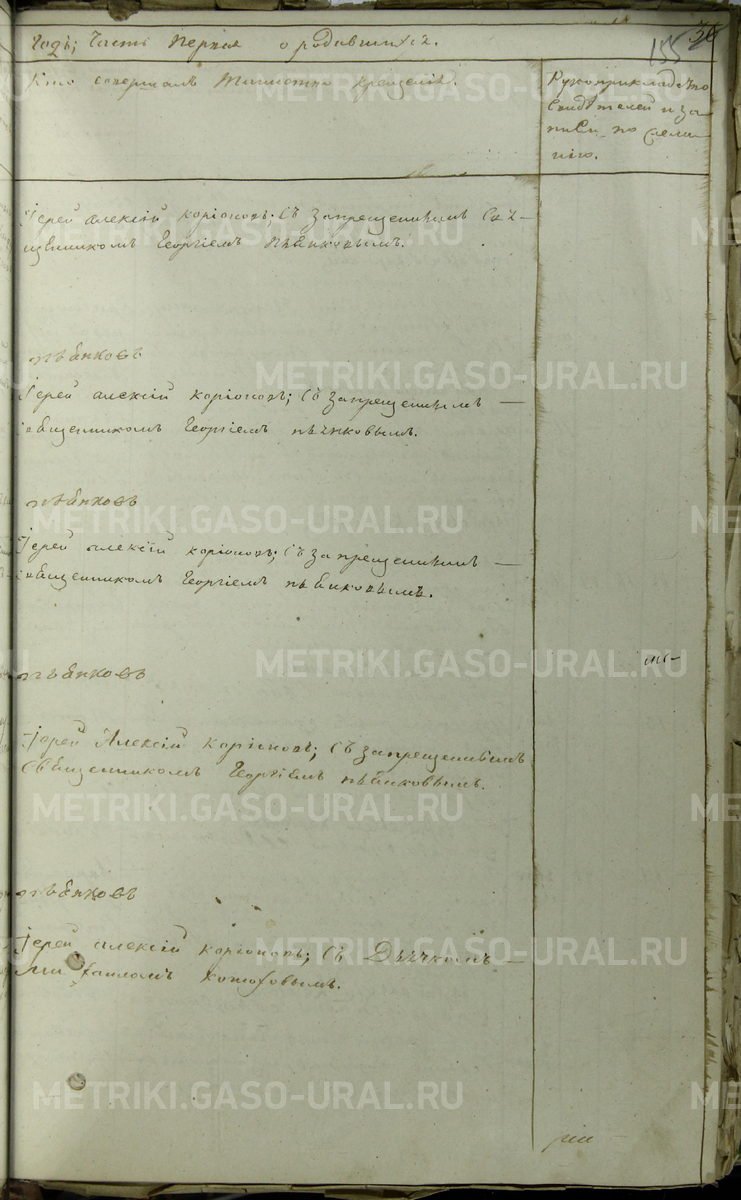 Годъ; Часть Первая о родившихся.
155
36
Кто совершалъ Таинство крещенія.
Рукоприкладство
Свидѣтелей и за-
писи по
нію.
Іерей Алексій Коріоновъ; Съ запрещеннымъ Свя-
щенникомъ Георгіемъ Пѣнковымъ.
Іерей Алексій Коріоновъ; Съ запрещеннымъ —
Священникомъ Георгіемъ Пѣнковымъ.
Іерей Алексій Коріоновъ; Съ запрещеннымъ —
Священникомъ Георгіемъ Пѣнковымъ.
Іерей Алексій Коріоновъ; Съ запрещеннымъ
Священникомъ Георгіемъ Пѣнковымъ.
Іерей Алексій Коріоновъ; Съ Дьячкомъ —
Михаиломъ
METRIKI.GASO-URAL.RU